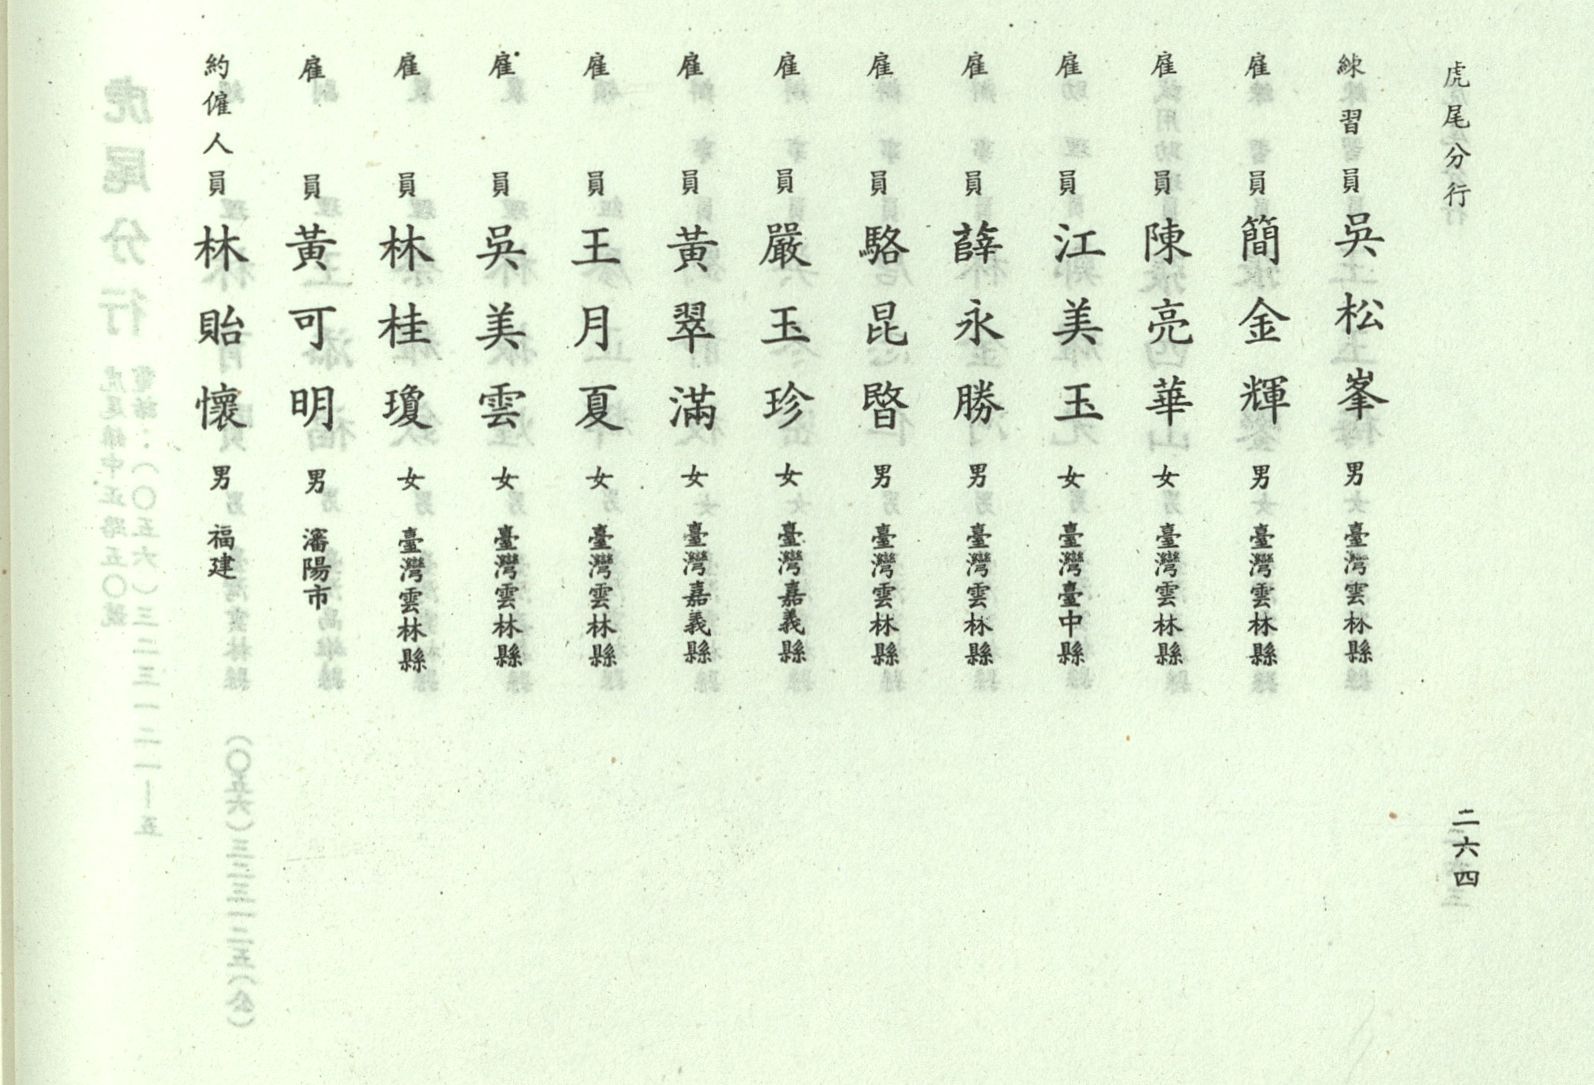 虎尾分行
二六四
練習員 吳松峯 男 臺灣雲林縣
雇員 簡金輝 男 臺灣雲林縣
雇員 陳亮華 女 臺灣雲林縣
雇員 江美玉 女 臺灣臺中縣
雇員 薛永勝 男 臺灣雲林縣
雇員 駱昆暋 男 臺灣雲林縣
雇員 嚴玉珍 女 臺灣嘉義縣
雇員 黃翠滿 女 臺灣嘉義縣
雇員 王月夏 女 臺灣雲林縣
雇員 吳美雲 女 臺灣雲林縣
雇員 林桂瓊 女 臺灣雲林縣
雇員 黃可明 男 瀋陽市
約僱人員 林貽懷 男 福建